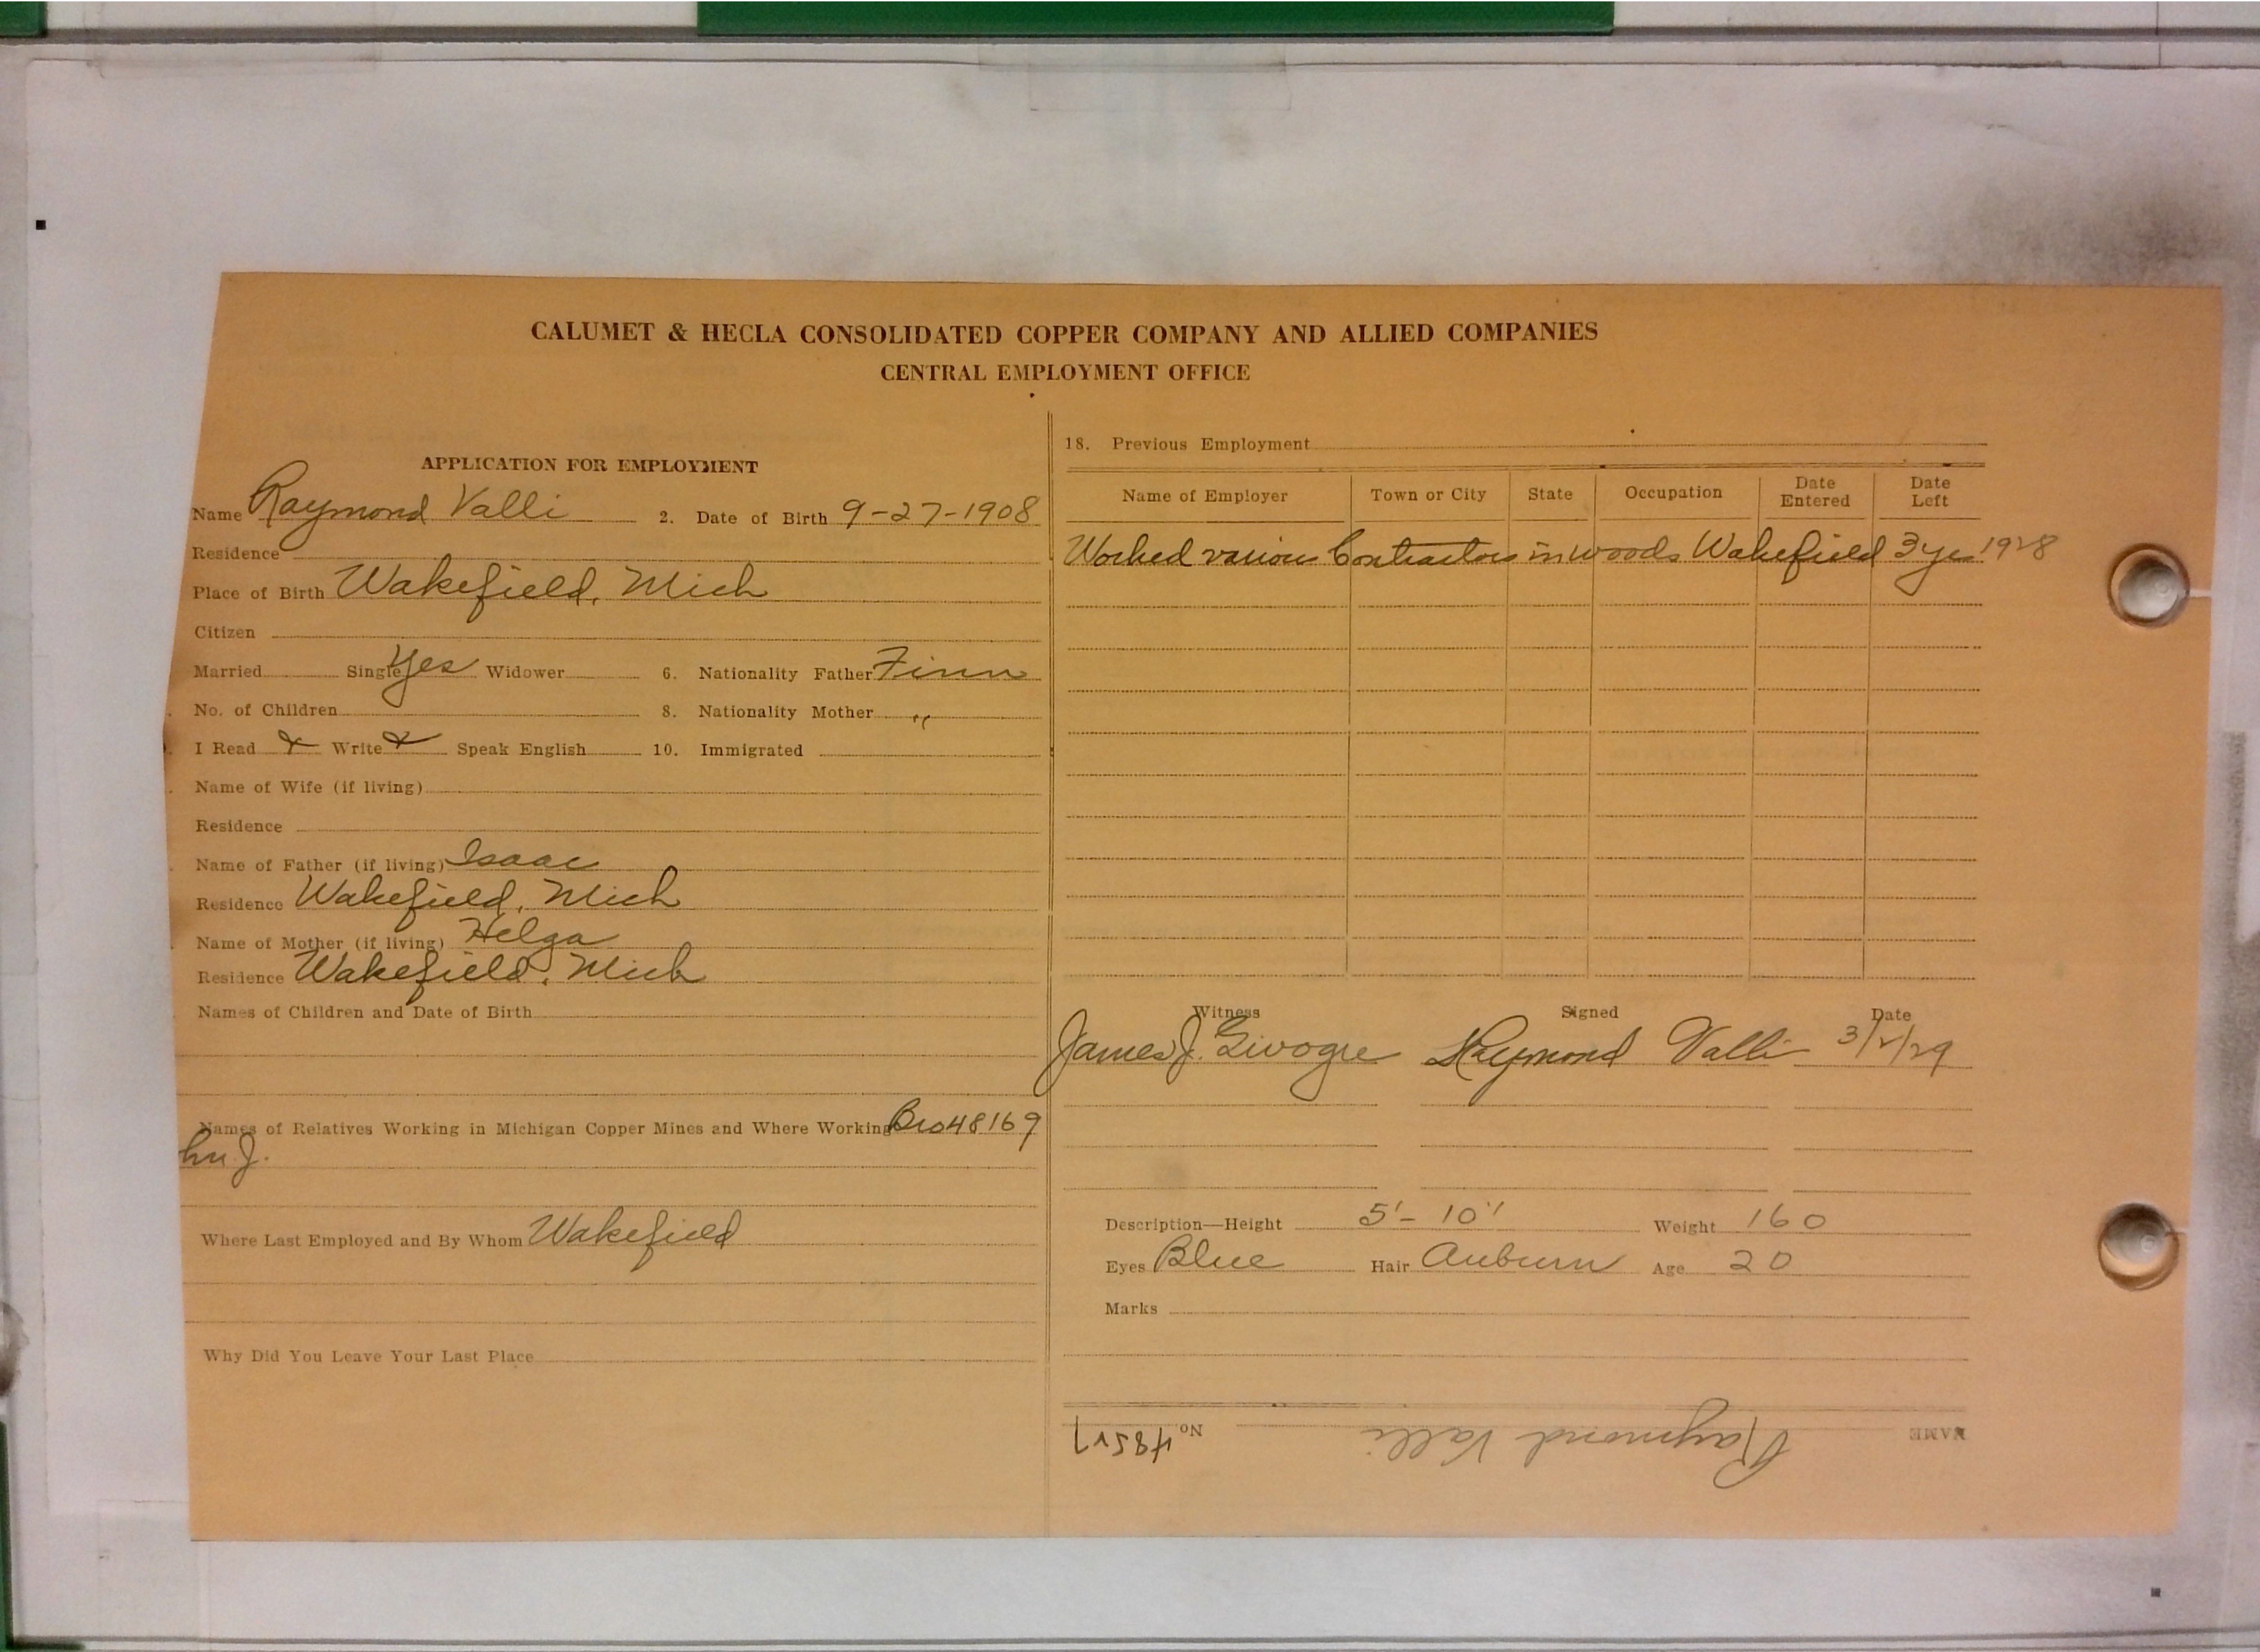 CALUMET & HECLA CONSOLIDATED COPPER COMPANY AND ALLIED COMPANIES
CENTRAL EMPLOYMENT OFFICE
APPLICATION FOR EMPLOYMENT
Name Raymond Valli 2. Date of Birth 9-27-1908
Residence
Place of Birth Wakefield, Mich
Citizen
Married Single Yes Widower 6. Nationality Father Finn
No. of Children 8. Nationality Mother "
I Read & Write & Speak English 10. Immigrated
Name of Wife (if living)
Residence
Name of Father (if living) Isaac
Residence Wakefield, Mich
Name of Mother (if living) Helga
Residence Wakefield, Mich
Names of Children and Date of Birth
Names of Relatives Working in Michigan Copper Mines and Where Working Bro 48169
J.
Where Last Employed and By Whom Wakefield
Why Did You Leave Your Last Place
18. Previous Employment
Name of Employer Town or City State Occupation Date Entered Date Left
Worked various Contractors in woods Wakefield 3 yrs 1928
Witness Signed Date
James J. Raymond Valli 3/2/29
Description—Height 5'-10" Weight 160
Eyes Blue Hair Auburn Age 20
Marks
NAME Raymond Valli No. 48527